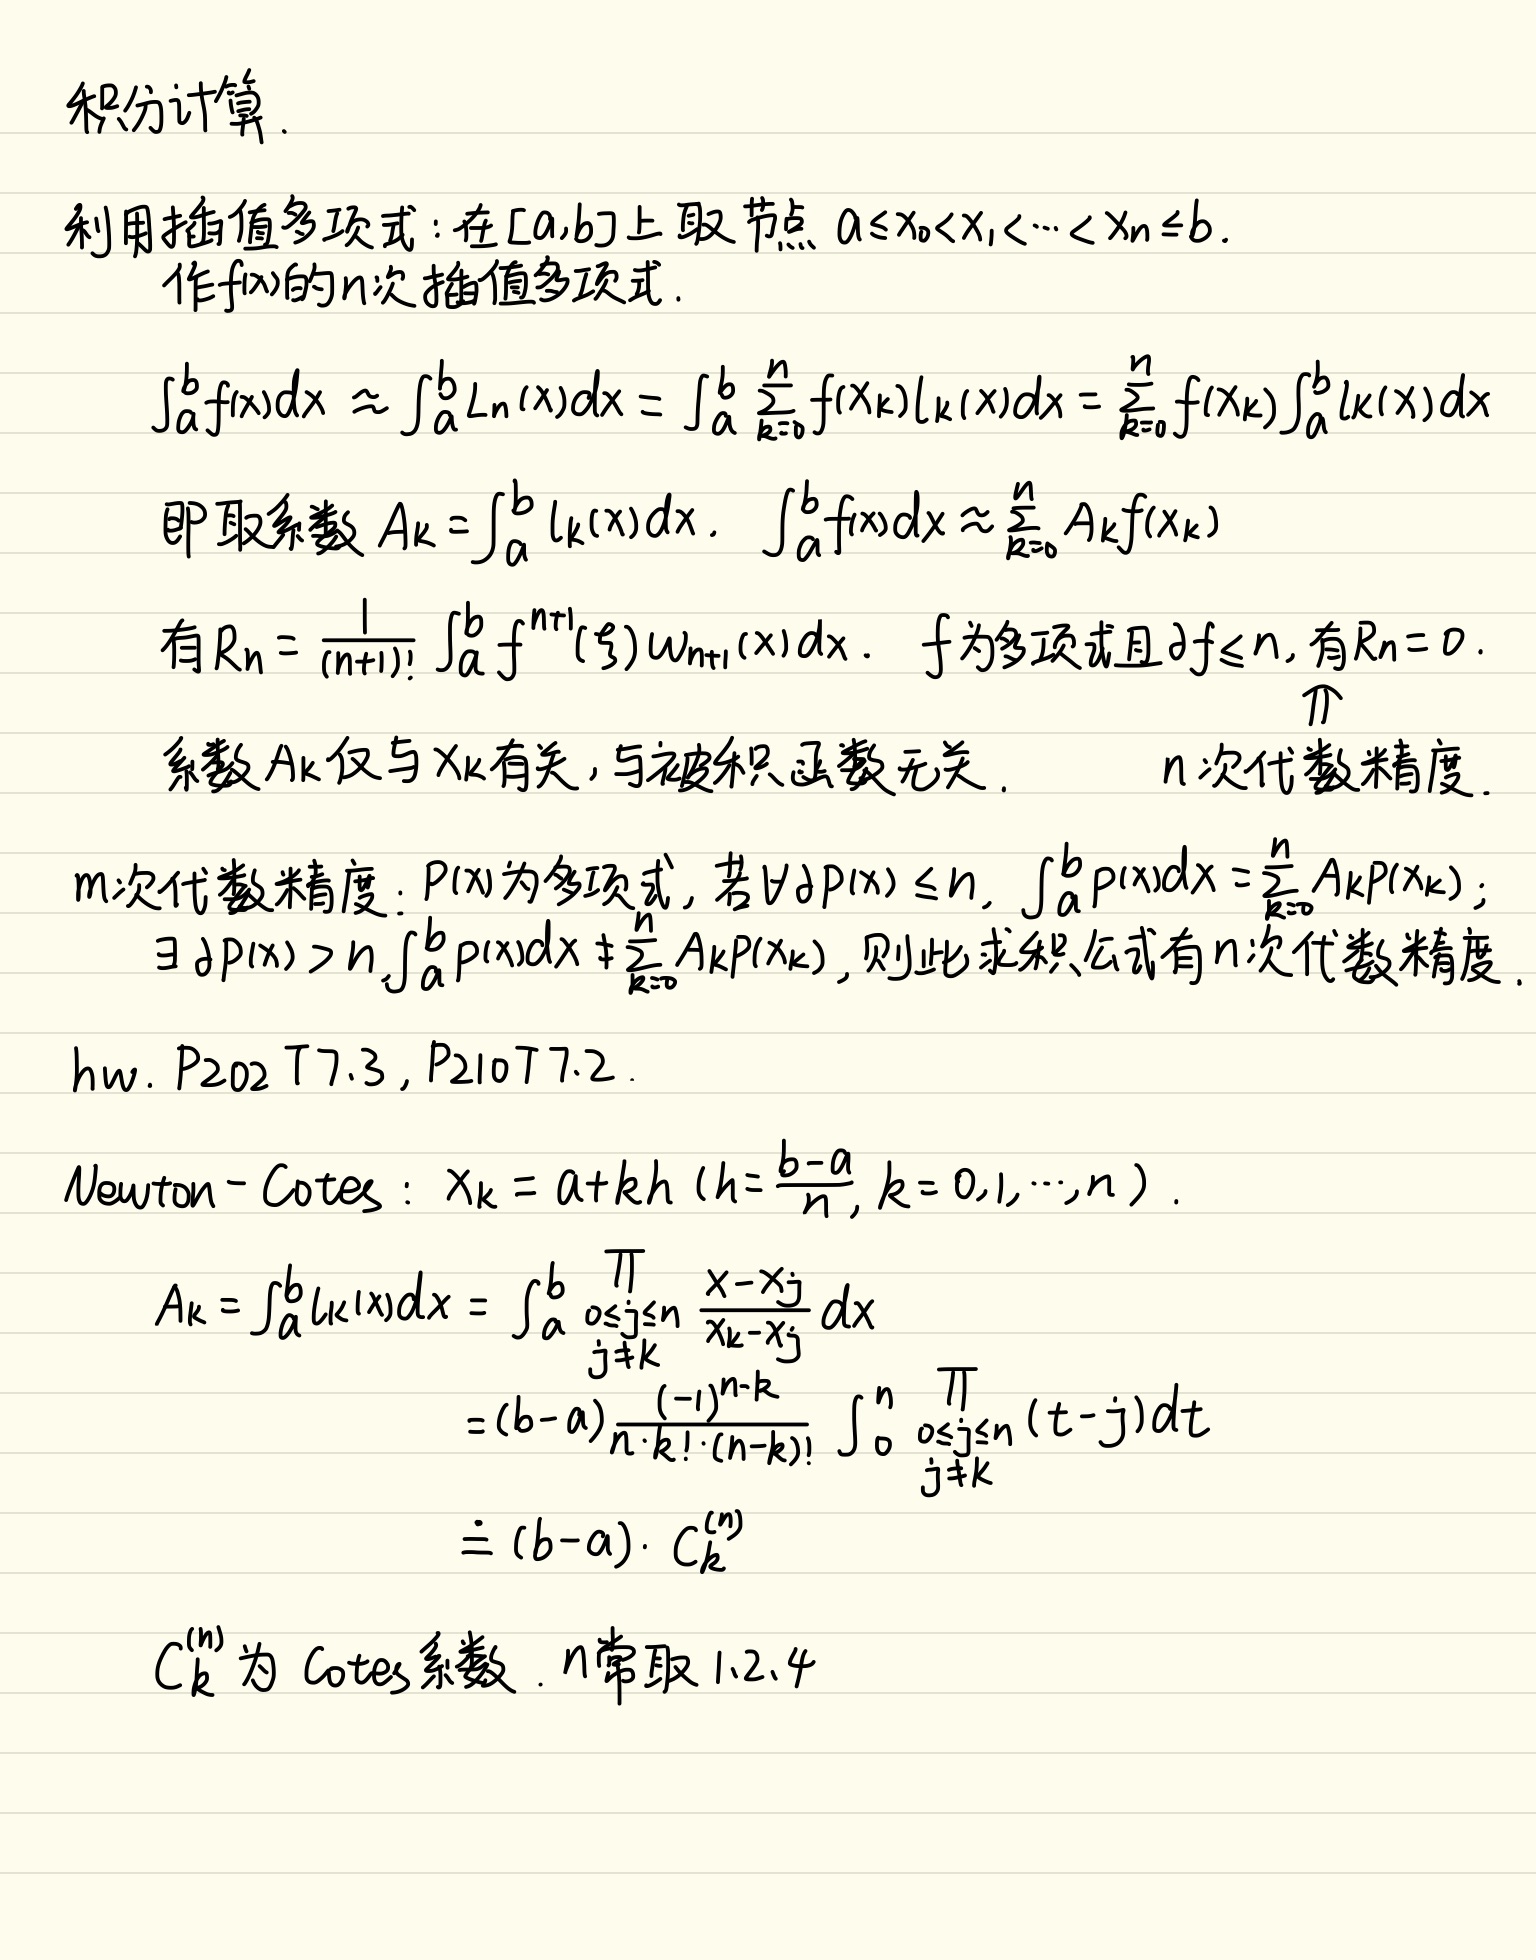 积分计算.
利用插值多项式:在[a,b]上取节点 a≤x₀<x₁<…<xₙ≤b.
作f(x)的n次插值多项式.
∫_a^b f(x)dx ≈ ∫_a^b Lₙ(x)dx = ∫_a^b ∑_{k=0}^n f(x_k)l_k(x)dx = ∑_{k=0}^n f(x_k)∫_a^b l_k(x)dx
即取系数 A_k = ∫_a^b l_k(x)dx. ∫_a^b f(x)dx ≈ ∑_{k=0}^n A_k f(x_k)
有Rₙ = \frac{1}{(n+1)!} ∫_a^b f^{n+1}(ξ)ω_{n+1}(x)dx. f为多项式且∂f≤n,有Rₙ=0.
⇑
系数A_k仅与x_k有关,与被积函数无关. n次代数精度.
m次代数精度:P(x)为多项式,若∀∂P(x)≤n, ∫_a^b p(x)dx = ∑_{k=0}^n A_k p(x_k);
∃∂P(x)>n, ∫_a^b p(x)dx ≠ ∑_{k=0}^n A_k p(x_k),则此求积公式有n次代数精度.
hw. P202 T7.3, P210 T7.2.
Newton-Cotes: x_k = a+kh (h=\frac{b-a}{n}, k=0,1,…,n).
A_k = ∫_a^b l_k(x)dx = ∫_a^b ∏_{0≤j≤n, j≠k} \frac{x-x_j}{x_k-x_j} dx
=(b-a)\frac{(-1)^{n-k}}{n·k!·(n-k)!} ∫_0^n ∏_{0≤j≤n, j≠k} (t-j)dt
≐ (b-a)· C_k^{(n)}
C_k^{(n)}为 Cotes系数. n常取1、2、4